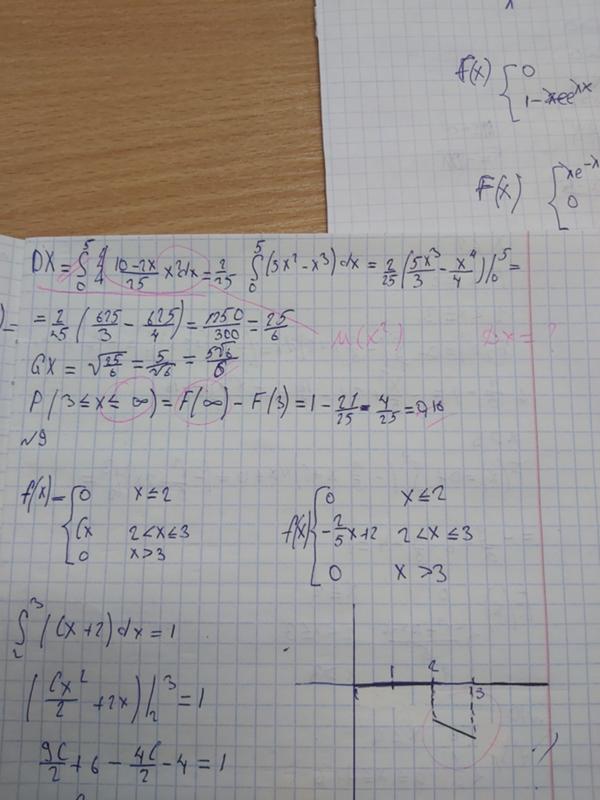 F(x) { 0
1 -
F(x) { λe^-λ
0
DX = ∫₀⁵ (10-2x)/25 x²dx = 2/25 ∫₀⁵ (5x² - x³) dx = 2/25 (5x³/3 - x⁴/4) |₀⁵ =
= 2/25 (625/3 - 625/4) = 1250/300 = 25/6
M(x²) Dx = ?
GX = √25/6 = 5/√6 = 5√6/6
P(3 ≤ x ≤ ∞) = F(∞) - F(3) = 1 - 21/25 = 4/25 = 0,16
№9
f(x) = { 0 x ≤ 2
Cx 2 < x ≤ 3
0 x > 3
f(x) { 0 x ≤ 2
-2/5x+2 2 < x ≤ 3
0 x > 3
∫₂³ (Cx + 2) dx = 1
(Cx²/2 + 2x) |₂³ = 1
9C/2 + 6 - 4C/2 - 4 = 1
1 2 3